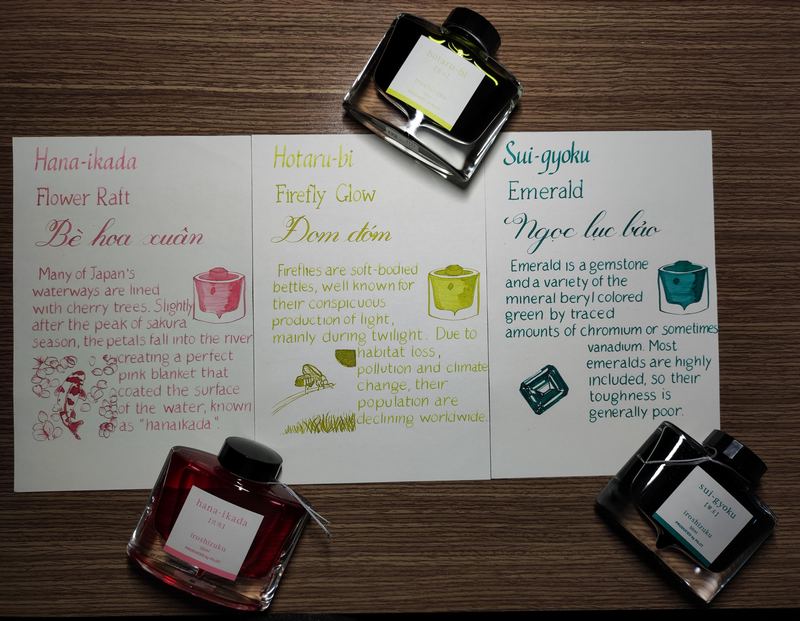 Hana-ikada
Flower Raft
Bè hoa xuân
Many of Japan's
waterways are lined
with cherry trees. Slightly
after the peak of sakura
season, the petals fall into the river
creating a perfect
pink blanket that
coated the surface
of the water, known
as "hanaikada".
Hotaru-bi
Firefly Glow
Đom đóm
Fireflies are soft-bodied
bettles, well known for
their conspicuous
production of light,
mainly during twilight. Due to
habitat loss,
pollution and climate
change, their
population are
declining worldwide.
Sui-gyoku
Emerald
Ngọc lục bảo
Emerald is a gemstone
and a variety of the
mineral beryl colored
green by traced
amounts of chromium or sometimes
vanadium. Most
emeralds are highly
included, so their
toughness is
generally poor.
hotaru-bi
hana-ikada
iroshizuku
50ml
PRODUCED by PILOT
sui-gyoku
iroshizuku
50ml
PRODUCED by PILOT